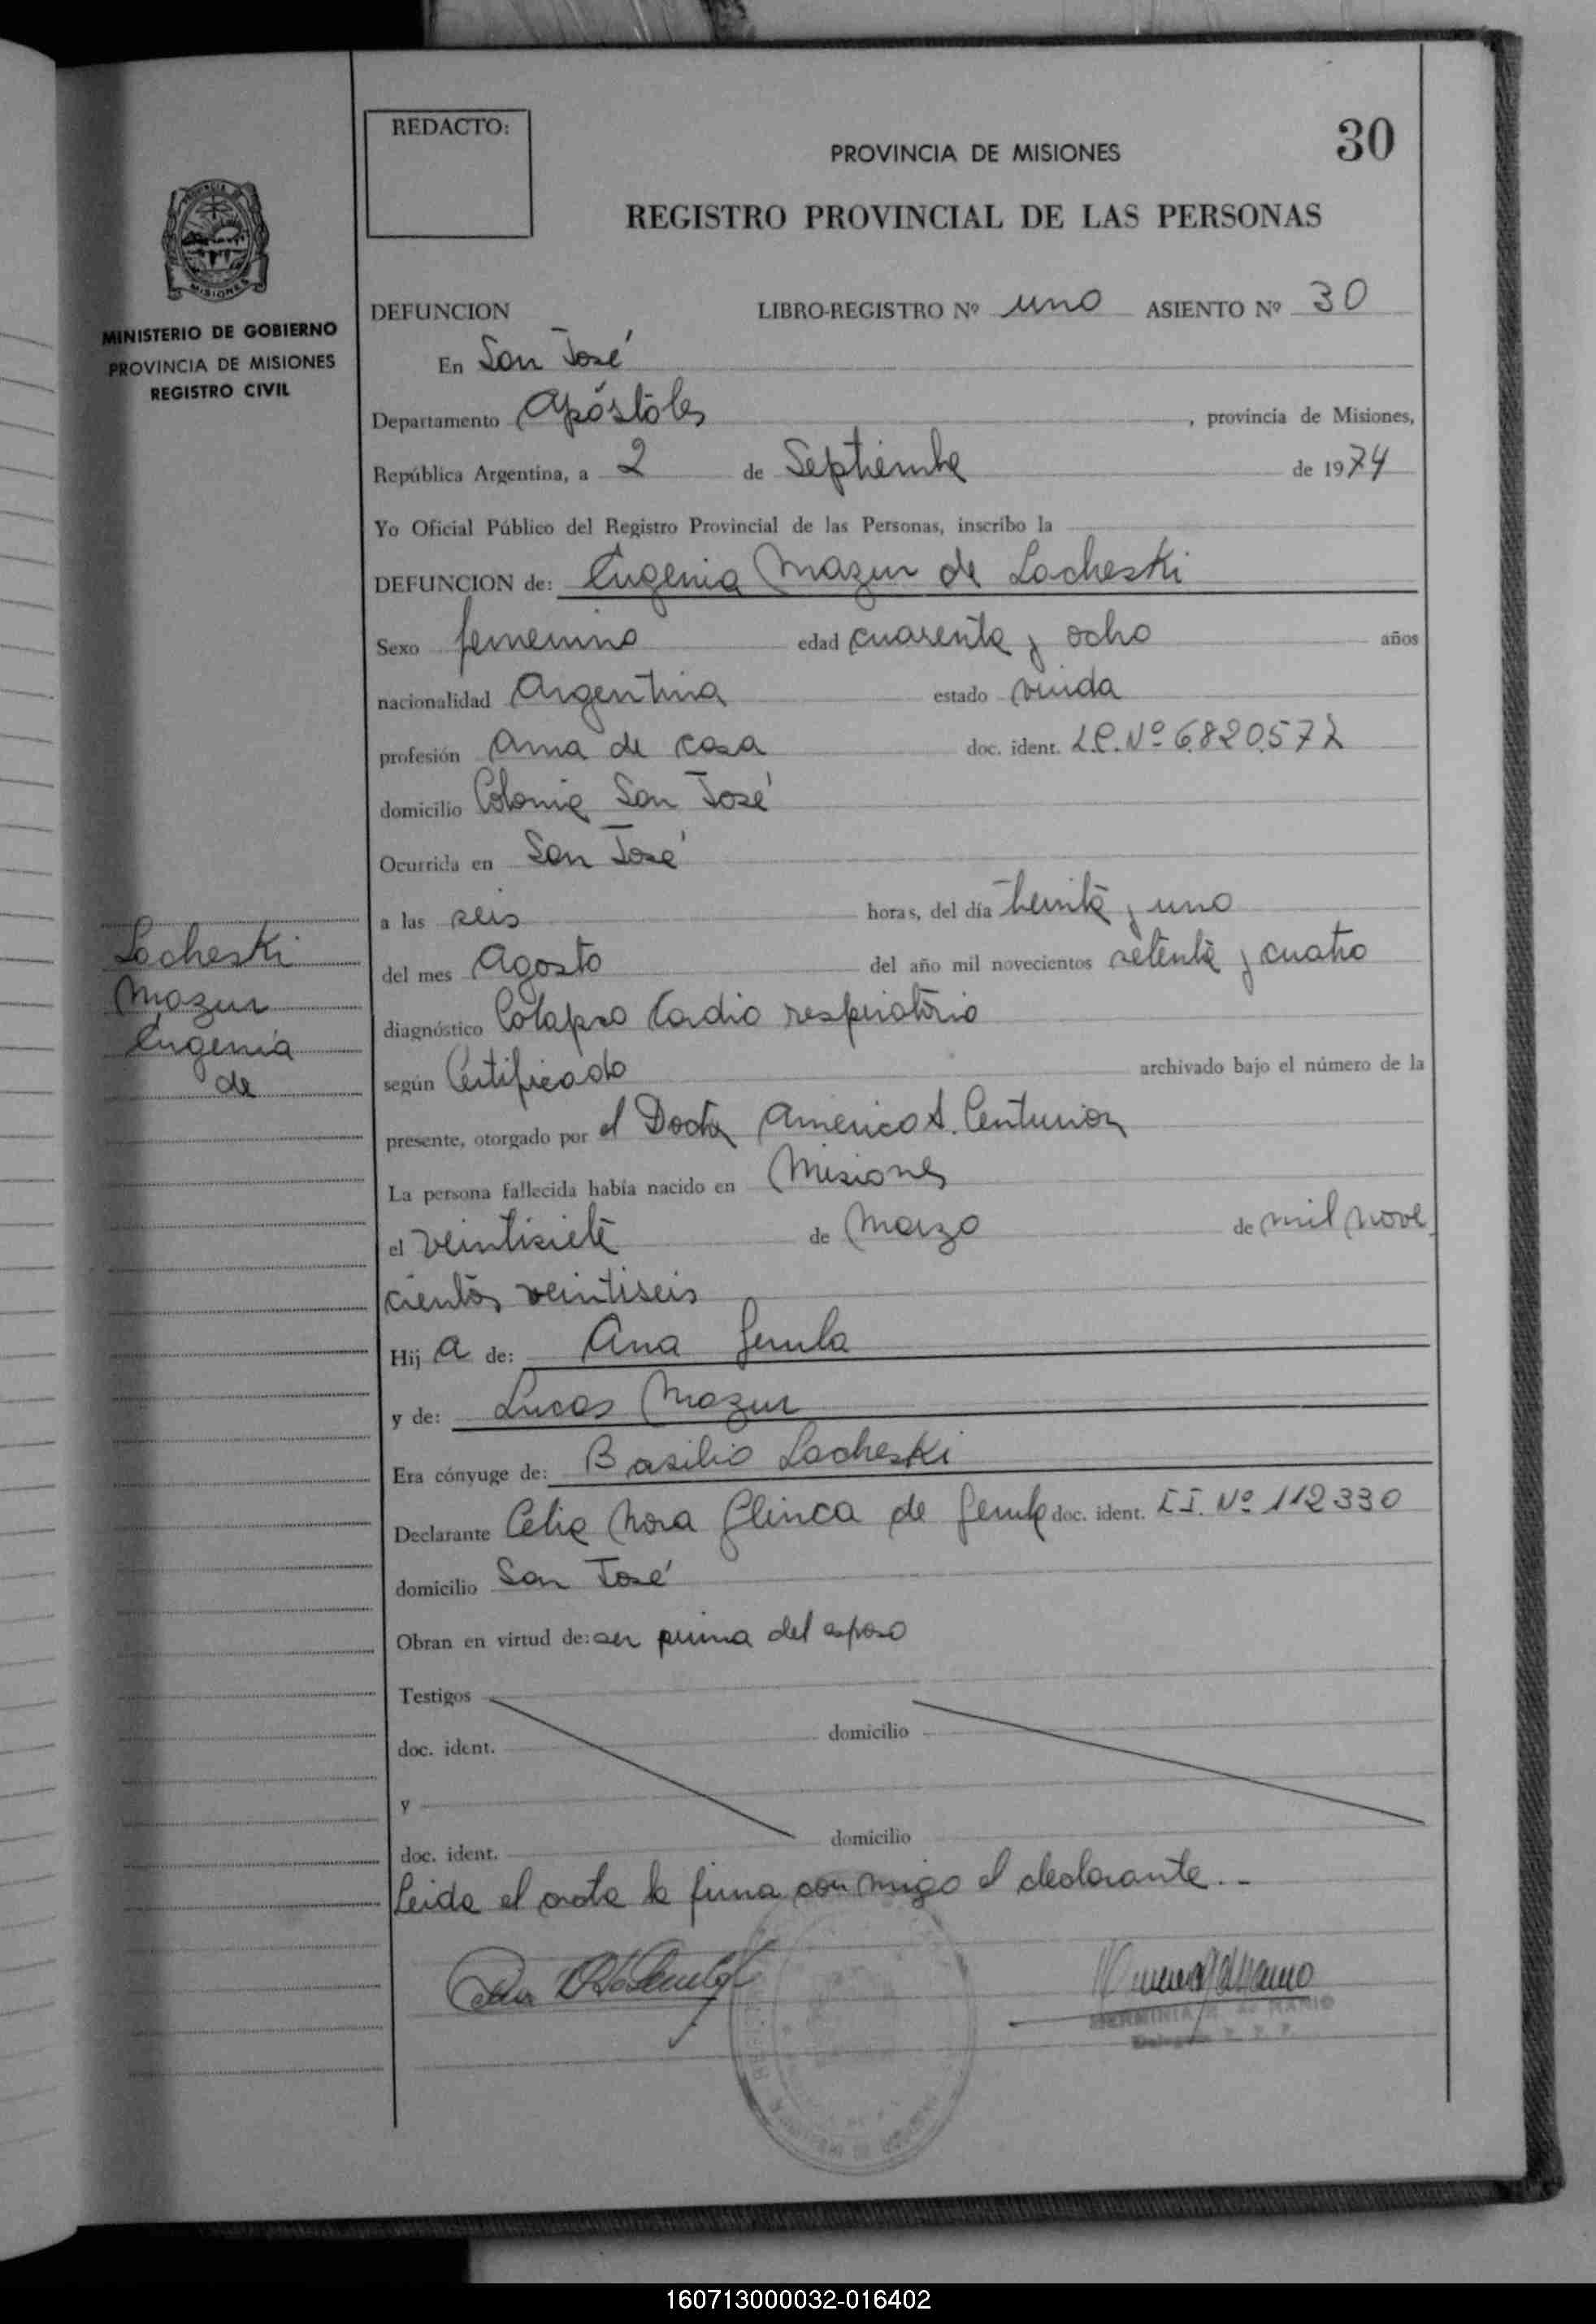 REDACTO:
PROVINCIA DE MISIONES
30
REGISTRO PROVINCIAL DE LAS PERSONAS
MISIONES
MINISTERIO DE GOBIERNO
PROVINCIA DE MISIONES
REGISTRO CIVIL
DEFUNCION LIBRO-REGISTRO Nº uno ASIENTO Nº 30
En San José
Departamento Apóstoles, provincia de Misiones,
República Argentina, a 2 de Septiembre de 1974
Yo Oficial Público del Registro Provincial de las Personas, inscribo la
DEFUNCION de: Eugenia Mazur de Lacheski
Sexo femenino edad cuarenta y ocho años
nacionalidad Argentina estado viuda
profesión Ama de casa doc. ident. L.C. Nº 6.820.572
domicilio Colonia San José
Ocurrida en San José
a las seis horas, del día treinta y uno
del mes Agosto del año mil novecientos setenta y cuatro
diagnóstico Colapso Cardio respiratorio
según Certificado archivado bajo el número de la
presente, otorgado por el Doctor Americo A. Centurion
La persona fallecida había nacido en Misiones
el veintisiete de Marzo de mil nove
cientos veintiseis
Hij a de: Ana Gemba
y de: Lucas Mazur
Era cónyuge de: Basilio Lacheski
Declarante Celia Nora Glinca de doc. ident. C.I. Nº 112330
domicilio San José
Obran en virtud de: ser prima del esposo
Testigos
doc. ident. domicilio
y
doc. ident. domicilio
Leida el acta la firma con migo el declarante..-
Lacheski
Mazur
Eugenia
de
HERMINIA
160713000032-016402